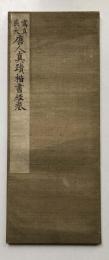 唐人真蹟楷書經卷